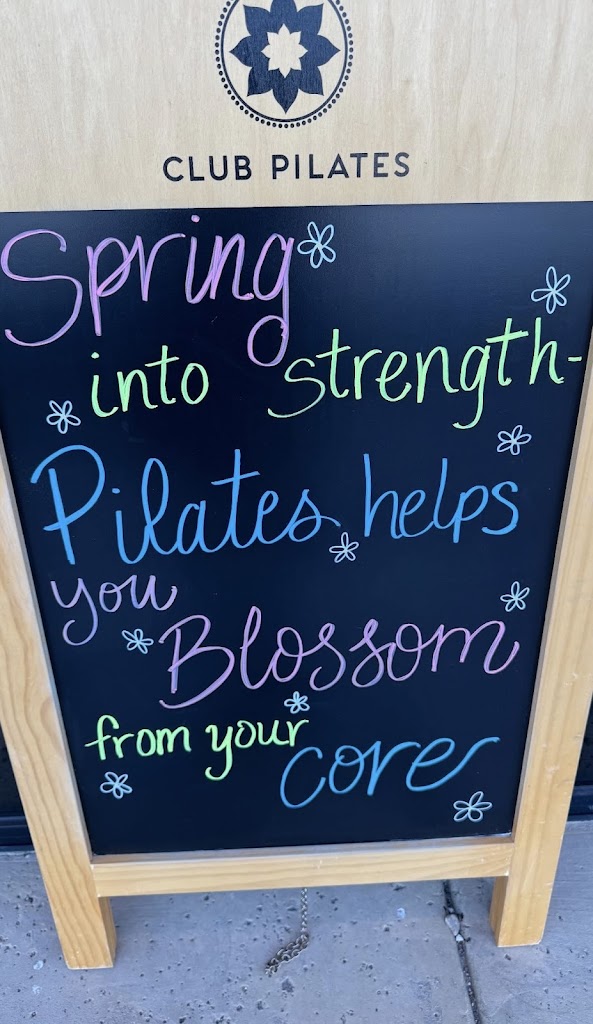 CLUB PILATES
Spring
into strength-
Pilates helps
you
Blossom
from your
core